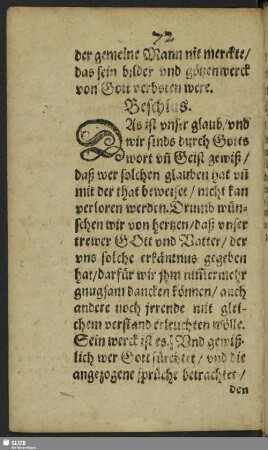 72
der gemeine Mann nit merckte/
das sein bilder vnd götzenwerck
von Gott verboten were.
Beschlus.
DAs ist vnser glaub/vnd
wir sinds durch Gotts
wort vñ Geist gewiß/
daß wer solchen glauben hat vñ
mit der that beweiset/ nicht kan
verloren werden. Drumb wün-
schen wir von hertzen/ daß vnser
trewer GOtt vnd Vatter/ der
vns solche erkäntnus gegeben
hat/ darfür wir jhm nim̃ermehr
gnugsam dancken können/ auch
andere noch jrrende mit glei-
chem verstand erleuchten wölle.
Sein werck ist es. Vnd gewiß-
lich wer Gott fürchtet/ vnd die
angezogene sprüche betrachtet/
den
SLUB